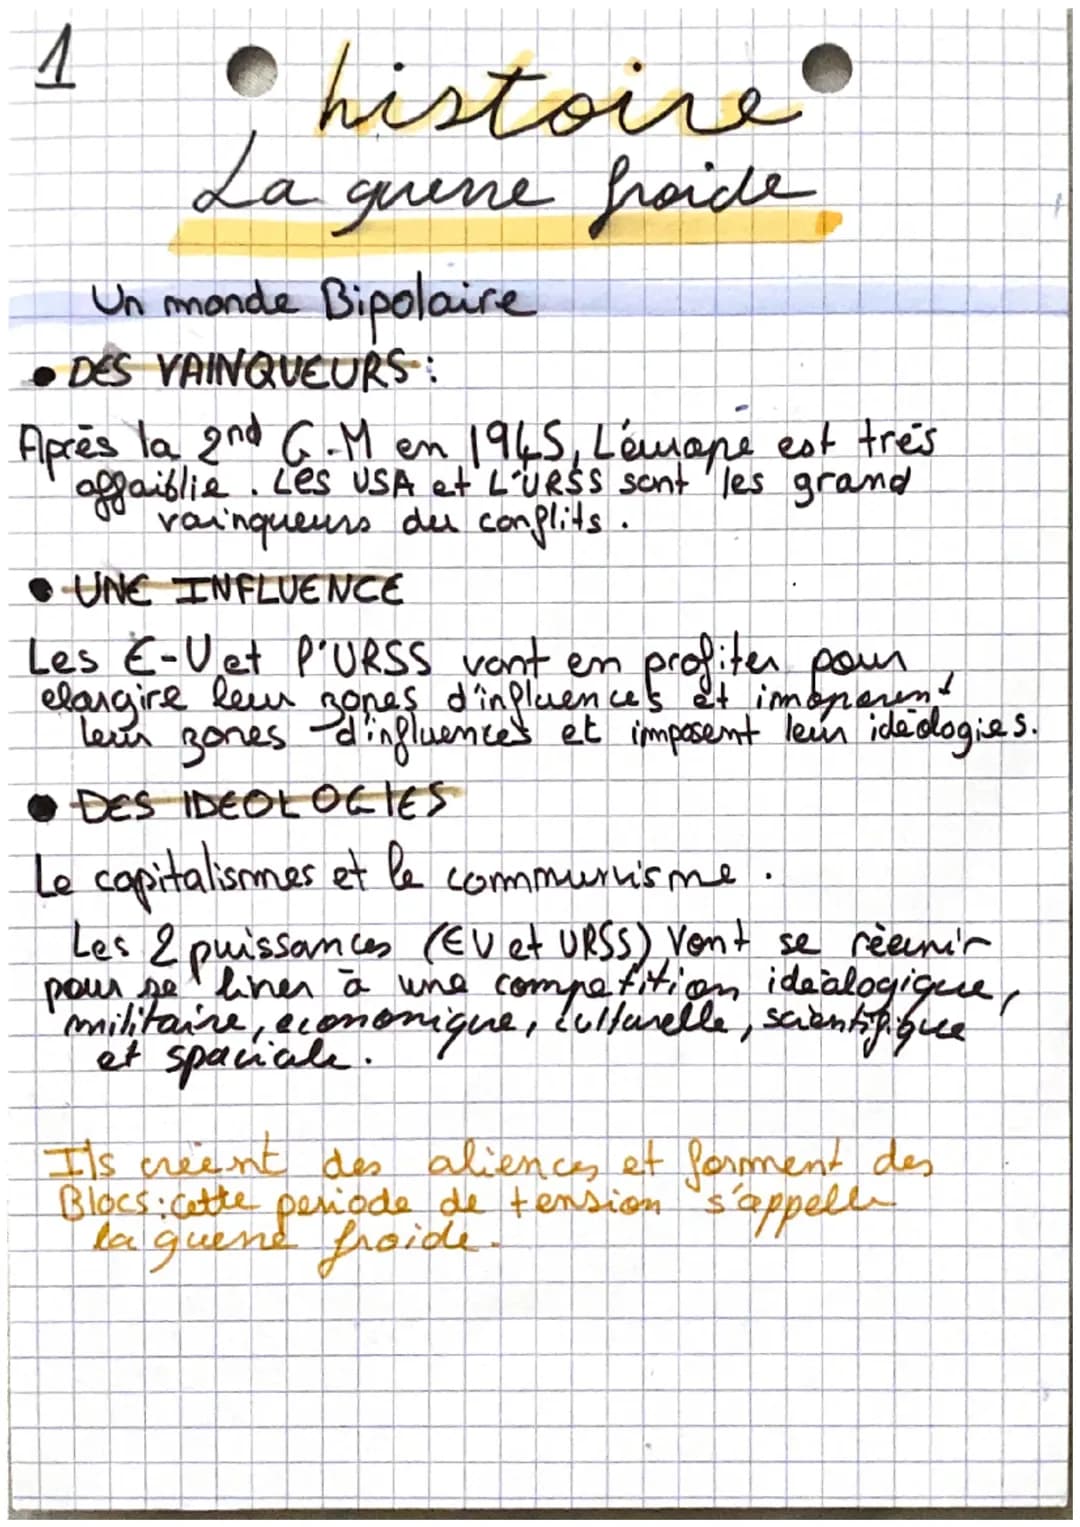 1
histoire
La guerre froide
Un monde Bipolaire
• DES VAINQUEURS :
Après la 2nd G-M en 1945, L'éurope est très
affaiblie. Les USA et L'URSS sont les grand
vainqueurs du conflits.
• UNE INFLUENCE
Les E-U et l'URSS vont en profiter pour
elargire leur zones d'influences et imoposent
leur zones d'influences et imposent leur idéologies.
• DES IDEOLOGIES
Le capitalismes et le communisme.
Les 2 puissances (EU et URSS) Vont se réeunir
pour se livrer à une competition idéologique,
militaire, economique, culturelle, scientifique
et spaciale.
Ils creent des aliences et forment des
Blocs : cette periode de tension s'appelle
la guerre froide.